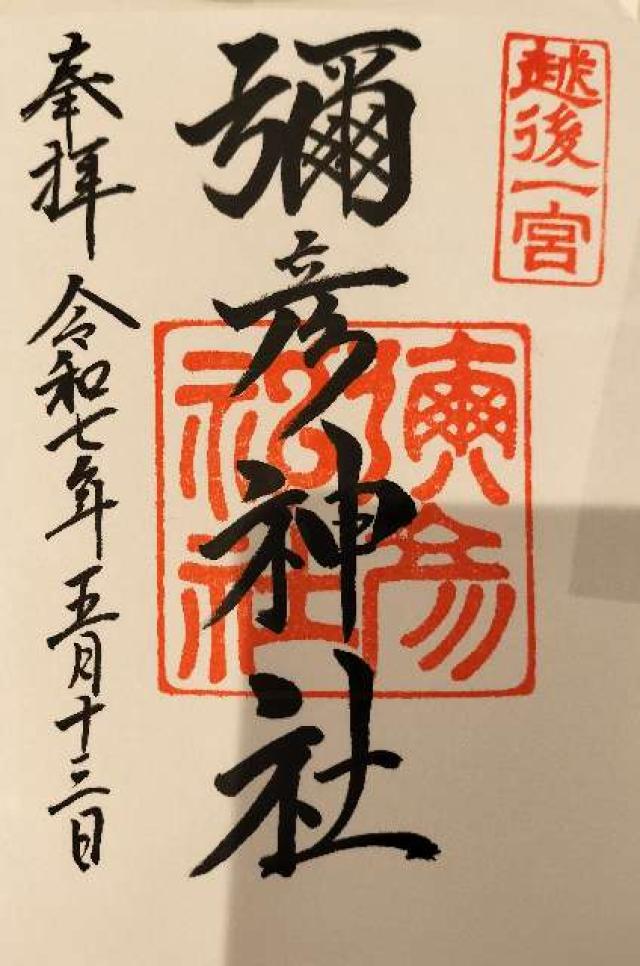 越後一宮
彌彦神社
彌彦神社
奉拝 令和七年五月十三日